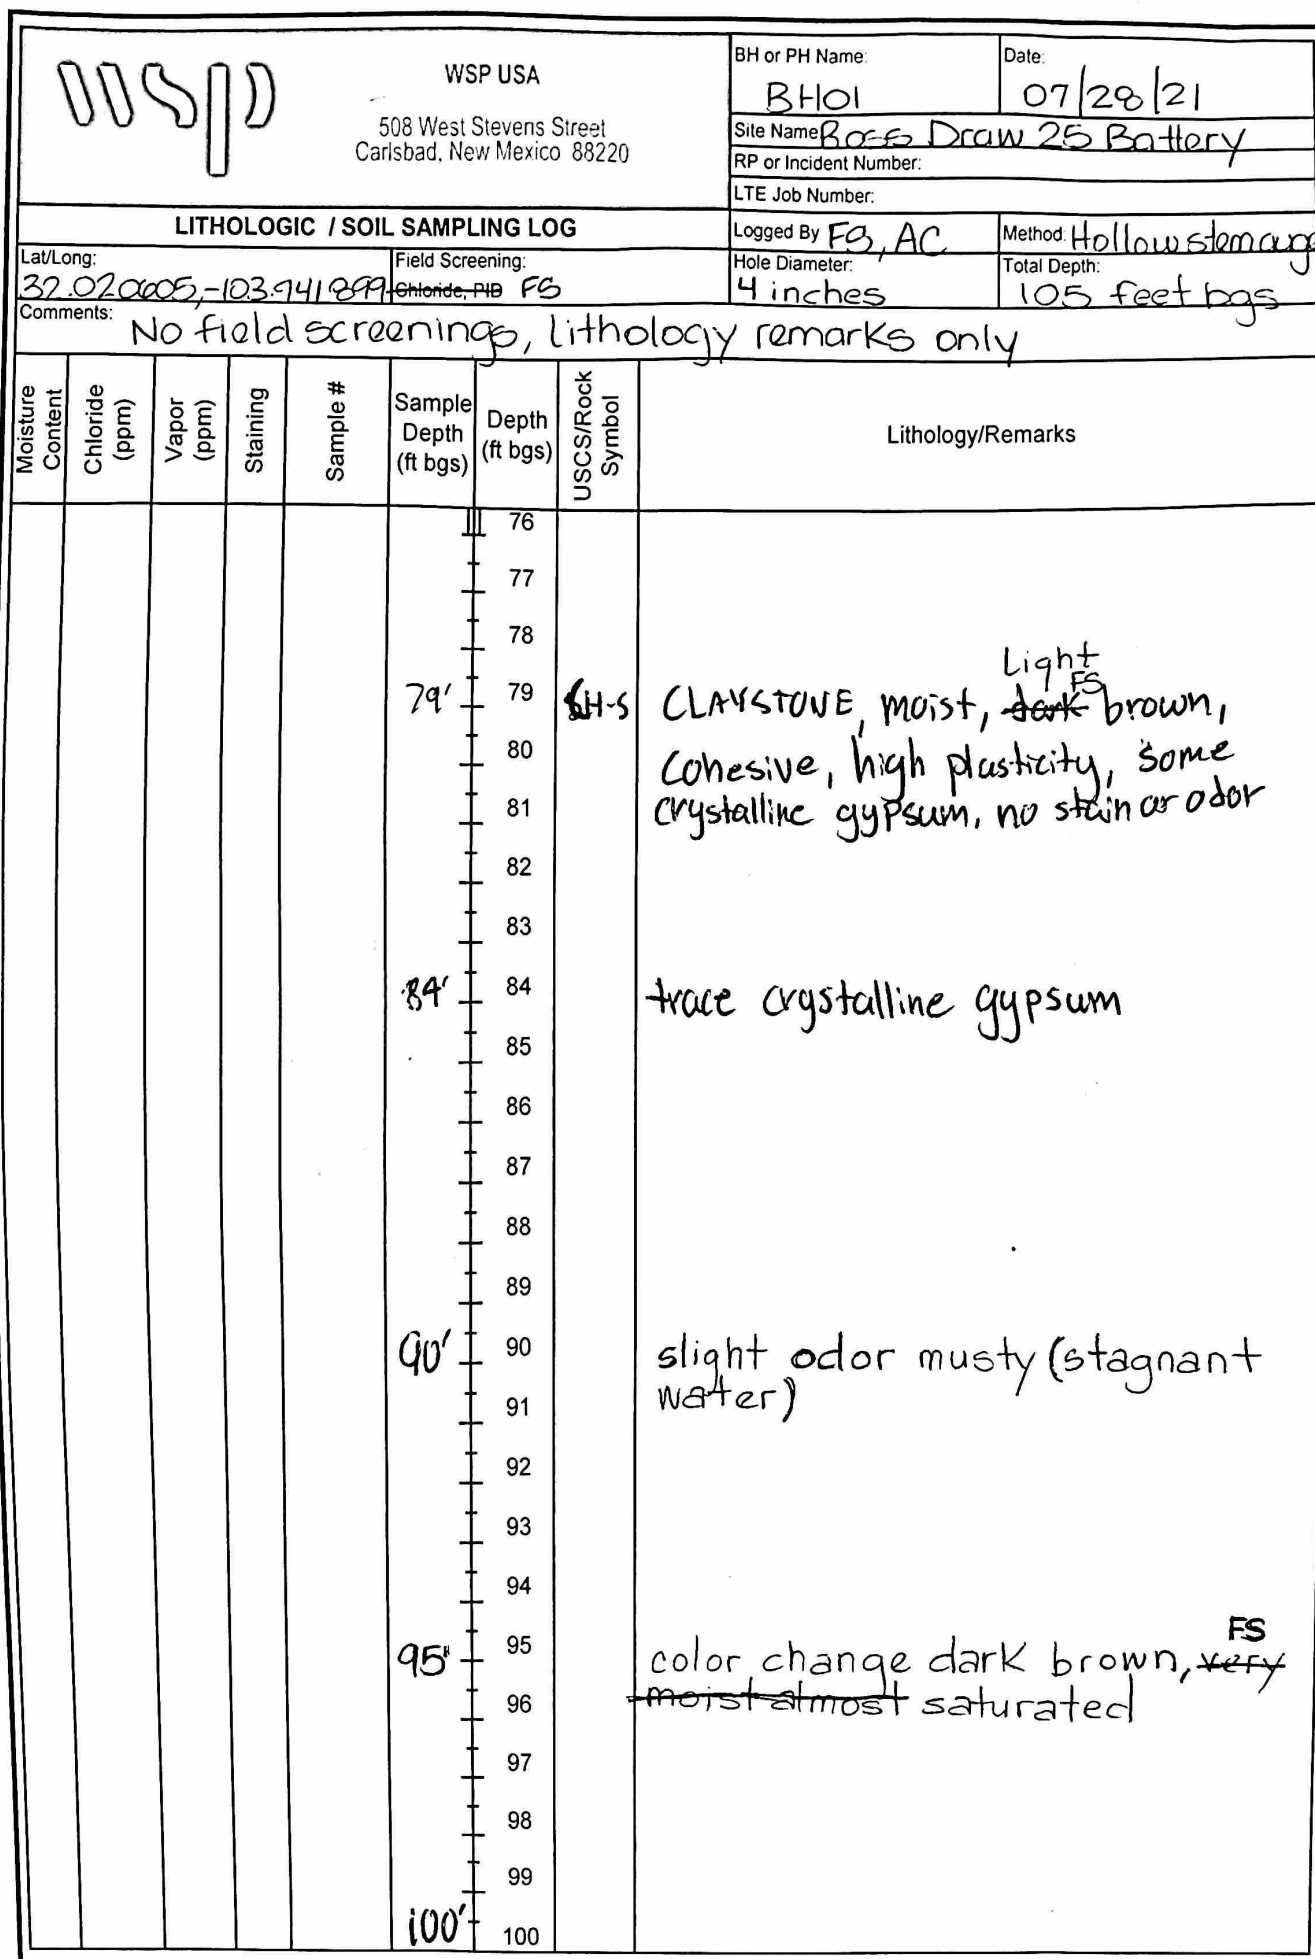 wsp
WSP USA
508 West Stevens Street
Carlsbad, New Mexico 88220
BH or PH Name:
BH01
Date:
07/28/21
Site Name: Ross Draw 25 Battery
RP or Incident Number:
LTE Job Number:
LITHOLOGIC / SOIL SAMPLING LOG
Logged By FS, AC
Method: Hollow stem auge
Lat/Long:
32.020605,-103.941899
Field Screening:
Chloride, PID FS
Hole Diameter:
4 inches
Total Depth:
105 feet bgs
Comments:
No field screenings, lithology remarks only
Moisture Content
Chloride (ppm)
Vapor (ppm)
Staining
Sample #
Sample Depth (ft bgs)
Depth (ft bgs)
USCS/Rock Symbol
Lithology/Remarks
76
77
78
Light
FS
79' 79 CLAYSTONE, moist, dark brown,
80 Cohesive, high plasticity, some
81 crystalline gypsum, no stain or odor
82
83
84' 84 trace crystalline gypsum
85
86
87
88
89
90' 90 slight odor musty (stagnant
91 water)
92
93
94
FS
95' 95 color change dark brown, very
96 moist almost saturated
97
98
99
100' 100